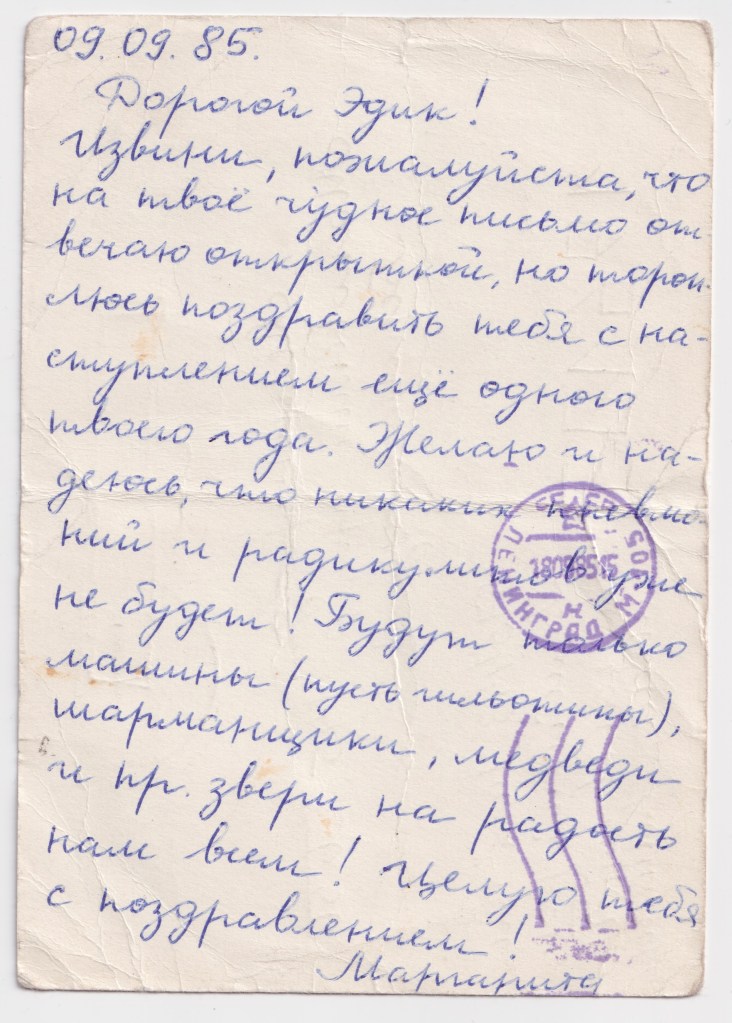 09.09.85.
Дорогой Эдик!
Извини, пожалуйста, что
на твоё чудное письмо от-
вечаю открыткой, но тороп-
люсь поздравить тебя с на-
ступлением ещё одного
твоего года. Желаю и на-
деюсь, что никаких пневмо-
ний и радикулитов уже
не будет! Будут только
машины (пусть гильотины),
шарманщики, медведи
и пр. звери на радость
нам всем! Целую тебя
с поздравлением!
Маргарита
ЛЕНИНГРАД